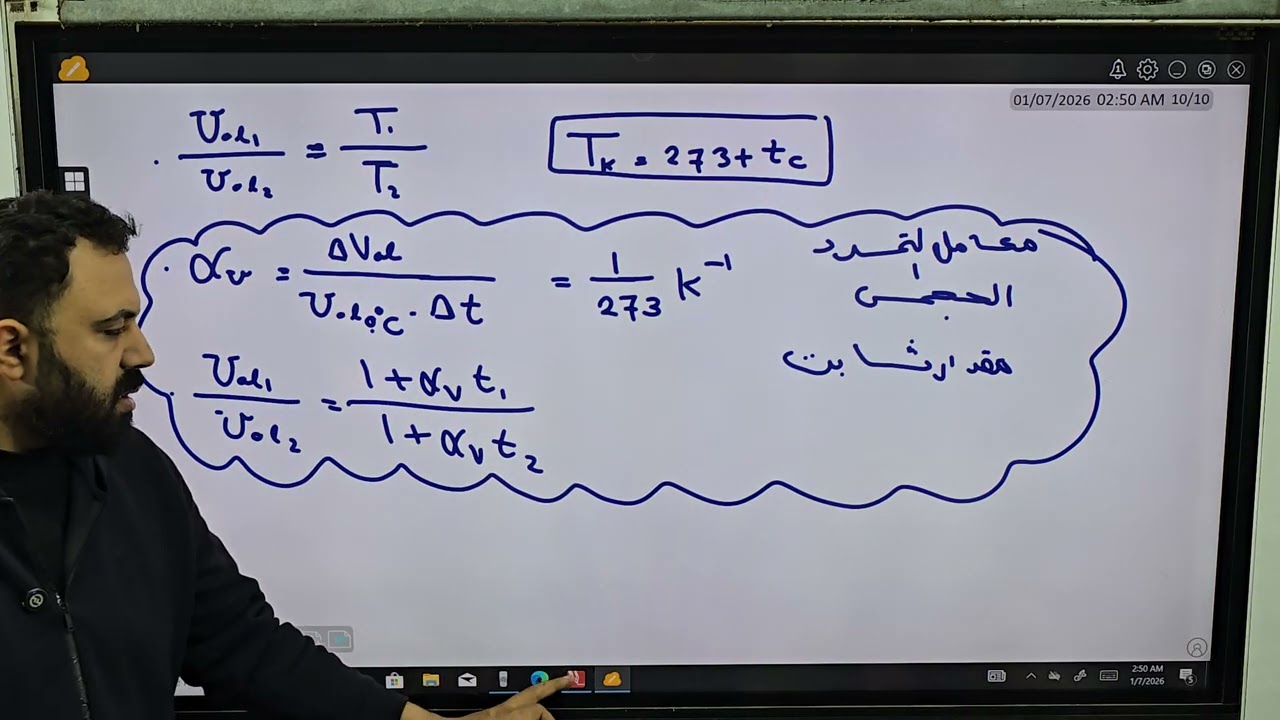 01/07/2026 02:50 AM 10/10
Vol₁/Vol₂ = T₁/T₂
T_K = 273 + t_C
α_v = ΔVol / (Vol₀°C · Δt) = 1/273 K⁻¹
معامل التمدد
الحجمى
Vol₁/Vol₂ = (1 + α_v t₁) / (1 + α_v t₂)
مقدار ثابت
2:50 AM
1/7/2026